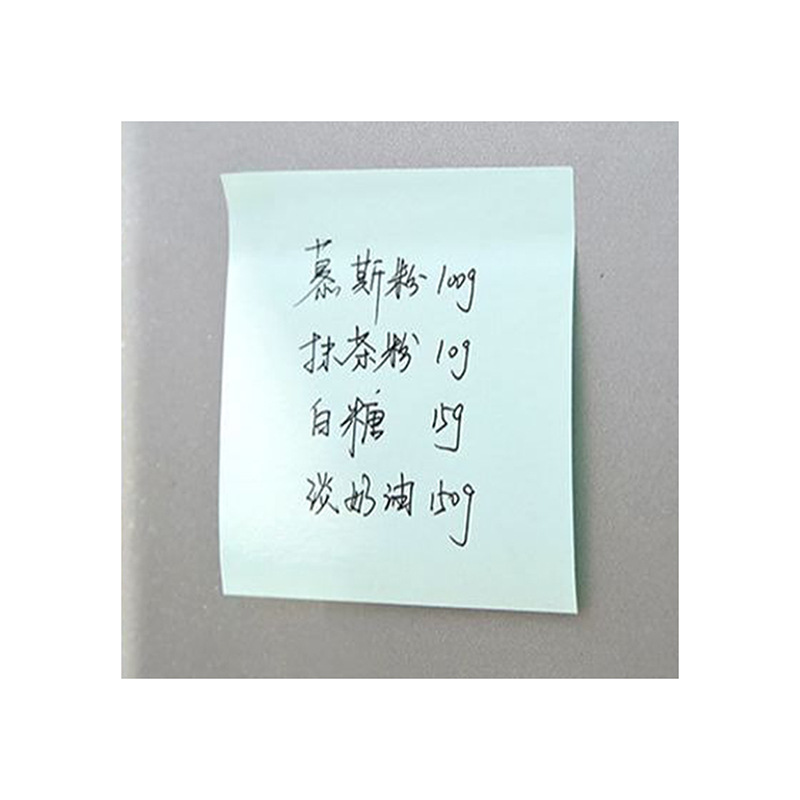 慕斯粉 100g
抹茶粉 10g
白糖 15g
淡奶油 150g